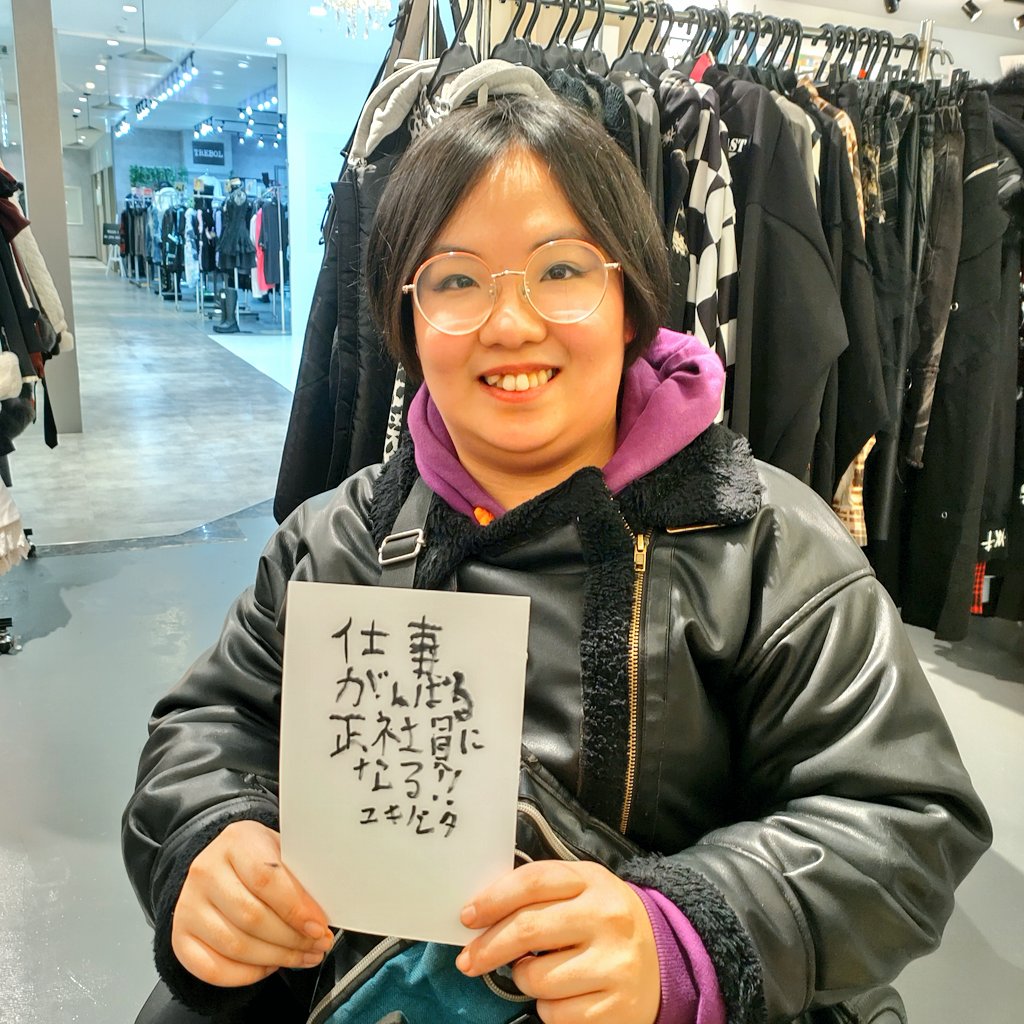 TREBOL
仕事
がんばる
正社員に
なる!!